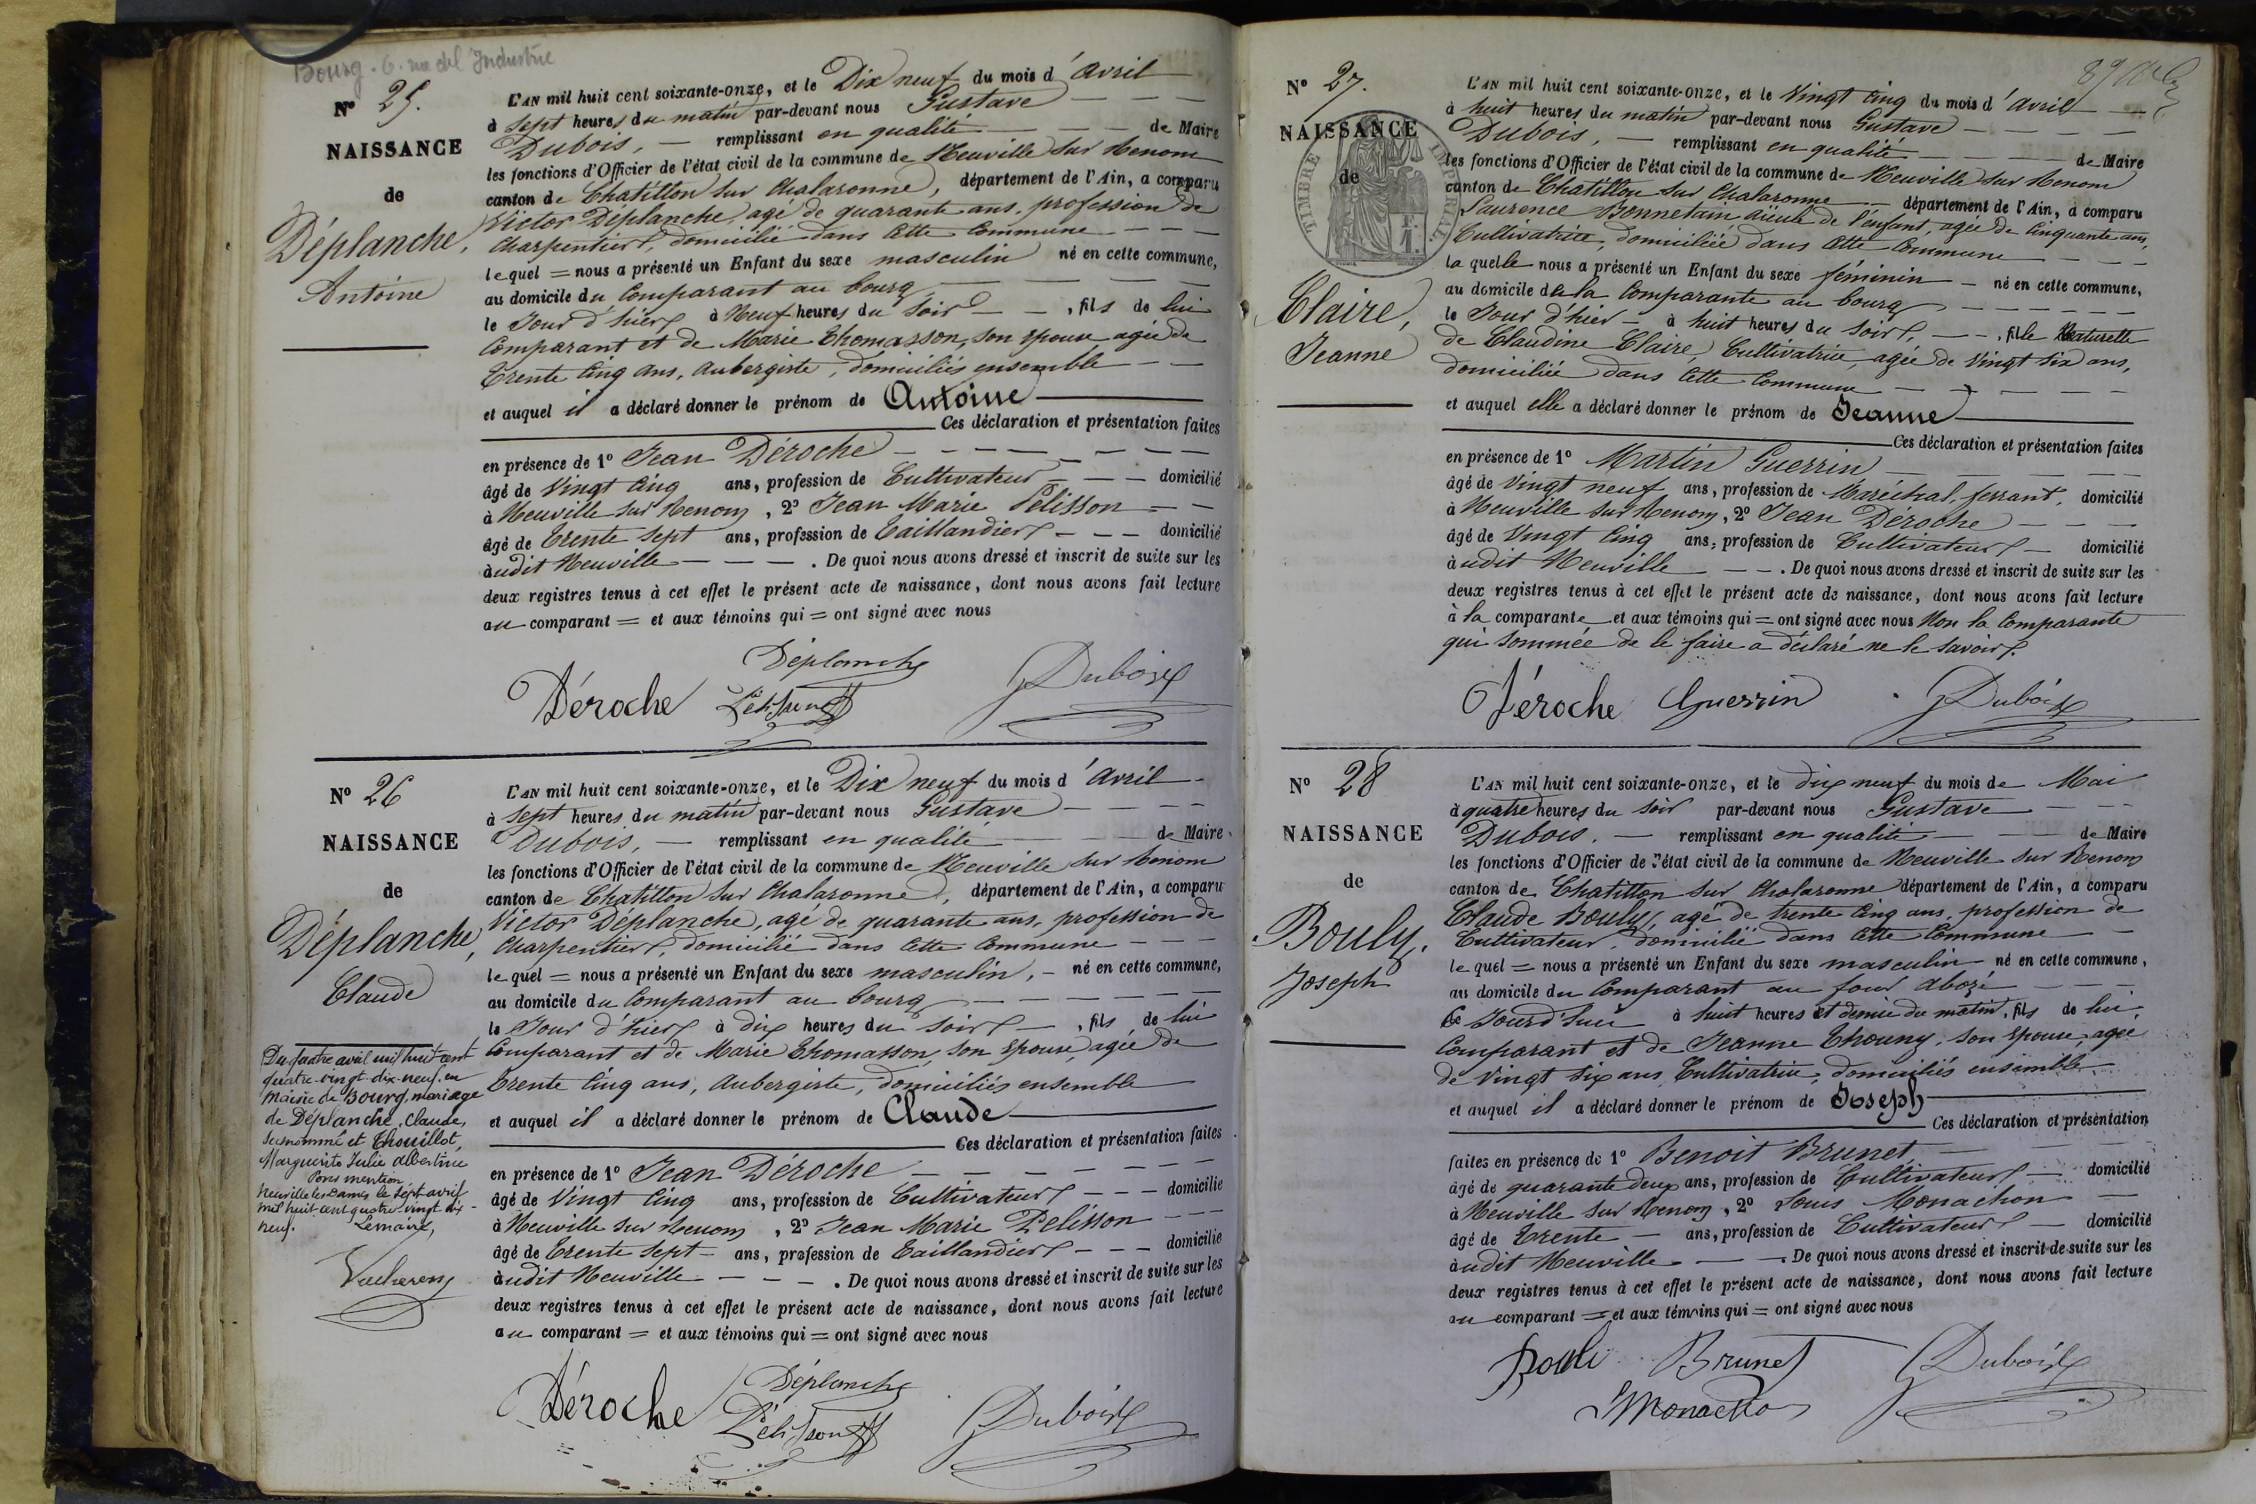 Bourg. 6. rue de l'Industrie
N° 25.
NAISSANCE
de
Déplanche,
Antoine
L'AN mil huit cent soixante-onze, et le Dix neuf du mois d'Avril
à sept heures du matin par-devant nous Gustave
Dubois, remplissant en qualité de Maire
les fonctions d'Officier de l'état civil de la commune de Neuville sur Renom
canton de Chatillon sur Chalaronne, département de l'Ain, a comparu
Victor Déplanche, agé de quarante ans, profession de
Charpentier, domicilié dans cette Commune
lequel = nous a présenté un Enfant du sexe masculin né en cette commune,
au domicile du Comparant au bourg
le Jour d'hier à Neuf heures du soir, fils de lui
Comparant et de Marie Thomasson, son épouse agée de
Trente cinq ans, Aubergiste, domiciliés ensemble
et auquel il a déclaré donner le prénom de Antoine
Ces déclaration et présentation faites
en présence de 1° Jean Déroche
âgé de Vingt cinq ans, profession de Cultivateur domicilié
à Neuville sur Renom, 2° Jean Marie Pélisson
âgé de Trente sept ans, profession de Taillandier domicilié
audit Neuville. De quoi nous avons dressé et inscrit de suite sur les
deux registres tenus à cet effet le présent acte de naissance, dont nous avons fait lecture
au comparant = et aux témoins qui = ont signé avec nous
Déplanche
Déroche Pélisson Dubois
N° 26
NAISSANCE
de
Déplanche,
Claude
Du quatre avril mil huit cent
quatre-vingt-dix-neuf, en
mairie de Bourg, mariage
de Déplanche, Claude,
susnommé et Thouillot,
Marguerite Julie Albertine
Pour mention
Neuville les Dames le sept avril
mil huit cent quatre-vingt dix-
neuf. Le maire,
L'AN mil huit cent soixante-onze, et le Dix neuf du mois d'Avril
à sept heures du matin par-devant nous Gustave
Dubois, remplissant en qualité de Maire
les fonctions d'Officier de l'état civil de la commune de Neuville sur Renom
canton de Chatillon sur Chalaronne, département de l'Ain, a comparu
Victor Déplanche, agé de quarante ans, profession de
Charpentier, domicilié dans cette Commune
lequel = nous a présenté un Enfant du sexe masculin, né en cette commune,
au domicile du Comparant au bourg
le Jour d'hier à dix heures du soir, fils de lui
Comparant et de Marie Thomasson, son épouse, agée de
Trente cinq ans, Aubergiste, domiciliés ensemble
et auquel il a déclaré donner le prénom de Claude
Ces déclaration et présentation faites
en présence de 1° Jean Déroche
âgé de Vingt cinq ans, profession de Cultivateur domicilié
à Neuville sur Renom, 2° Jean Marie Pelisson
âgé de Trente sept ans, profession de Taillandier domicilié
audit Neuville. De quoi nous avons dressé et inscrit de suite sur les
deux registres tenus à cet effet le présent acte de naissance, dont nous avons fait lecture
au comparant = et aux témoins qui = ont signé avec nous
Déplanche
Déroche Pélisson Dubois
N° 27.
NAISSANCE
de
TIMBRE IMPERIAL
Claire,
Jeanne
L'AN mil huit cent soixante-onze, et le Vingt Cinq du mois d'Avril
à huit heures du matin par-devant nous Gustave
Dubois, remplissant en qualité de Maire
les fonctions d'Officier de l'état civil de la commune de Neuville sur Renom
canton de Chatillon sur Chalaronne département de l'Ain, a comparu
Laurence Bonnetain aïeule de l'enfant, agée de Cinquante ans,
Cultivatrice, domiciliée dans cette Commune
la quelle nous a présenté un Enfant du sexe féminin né en cette commune,
au domicile de la Comparante au bourg
le Jour d'hier à huit heures du soir, fille Naturelle
de Claudine Claire, Cultivatrice, agée de Vingt six ans,
domiciliée dans cette Commune
et auquel elle a déclaré donner le prénom de Jeanne
Ces déclaration et présentation faites
en présence de 1° Martin Guerrin
âgé de Vingt neuf ans, profession de Maréchal ferrant, domicilié
à Neuville sur Renom, 2° Jean Déroche
âgé de Vingt Cinq ans, profession de Cultivateur domicilié
audit Neuville. De quoi nous avons dressé et inscrit de suite sur les
deux registres tenus à cet effet le présent acte de naissance, dont nous avons fait lecture
à la comparante et aux témoins qui = ont signé avec nous Non la Comparante
qui sommée de le faire a déclaré ne le savoir.
Déroche Guerrin Dubois
N° 28
NAISSANCE
de
Bouly,
Joseph
L'AN mil huit cent soixante-onze, et le dix neuf du mois de Mai
à quatre heures du soir par-devant nous Gustave
Dubois. remplissant en qualité de Maire
les fonctions d'Officier de l'état civil de la commune de Neuville sur Renom
canton de Chatillon sur Chalaronne département de l'Ain, a comparu
Claude Bouly, agé de trente cinq ans, profession de
Cultivateur, domicilié dans cette Commune
lequel = nous a présenté un Enfant du sexe masculin né en cette commune,
au domicile du Comparant au four
Ce Jourd'hui à huit heures et demie du matin, fils de lui,
Comparant et de Jeanne Thouny, son épouse, agée
de Vingt six ans, Cultivatrice, domiciliés ensemble
et auquel il a déclaré donner le prénom de Joseph
Ces déclaration et présentation
faites en présence de 1° Benoit Brunet
âgé de quarante deux ans, profession de Cultivateur domicilié
à Neuville sur Renom, 2° Louis Monachon
âgé de Trente ans, profession de Cultivateur domicilié
audit Neuville. De quoi nous avons dressé et inscrit de suite sur les
deux registres tenus à cet effet le présent acte de naissance, dont nous avons fait lecture
au comparant = et aux témoins qui = ont signé avec nous
Bouli Brunet Dubois
Monachon